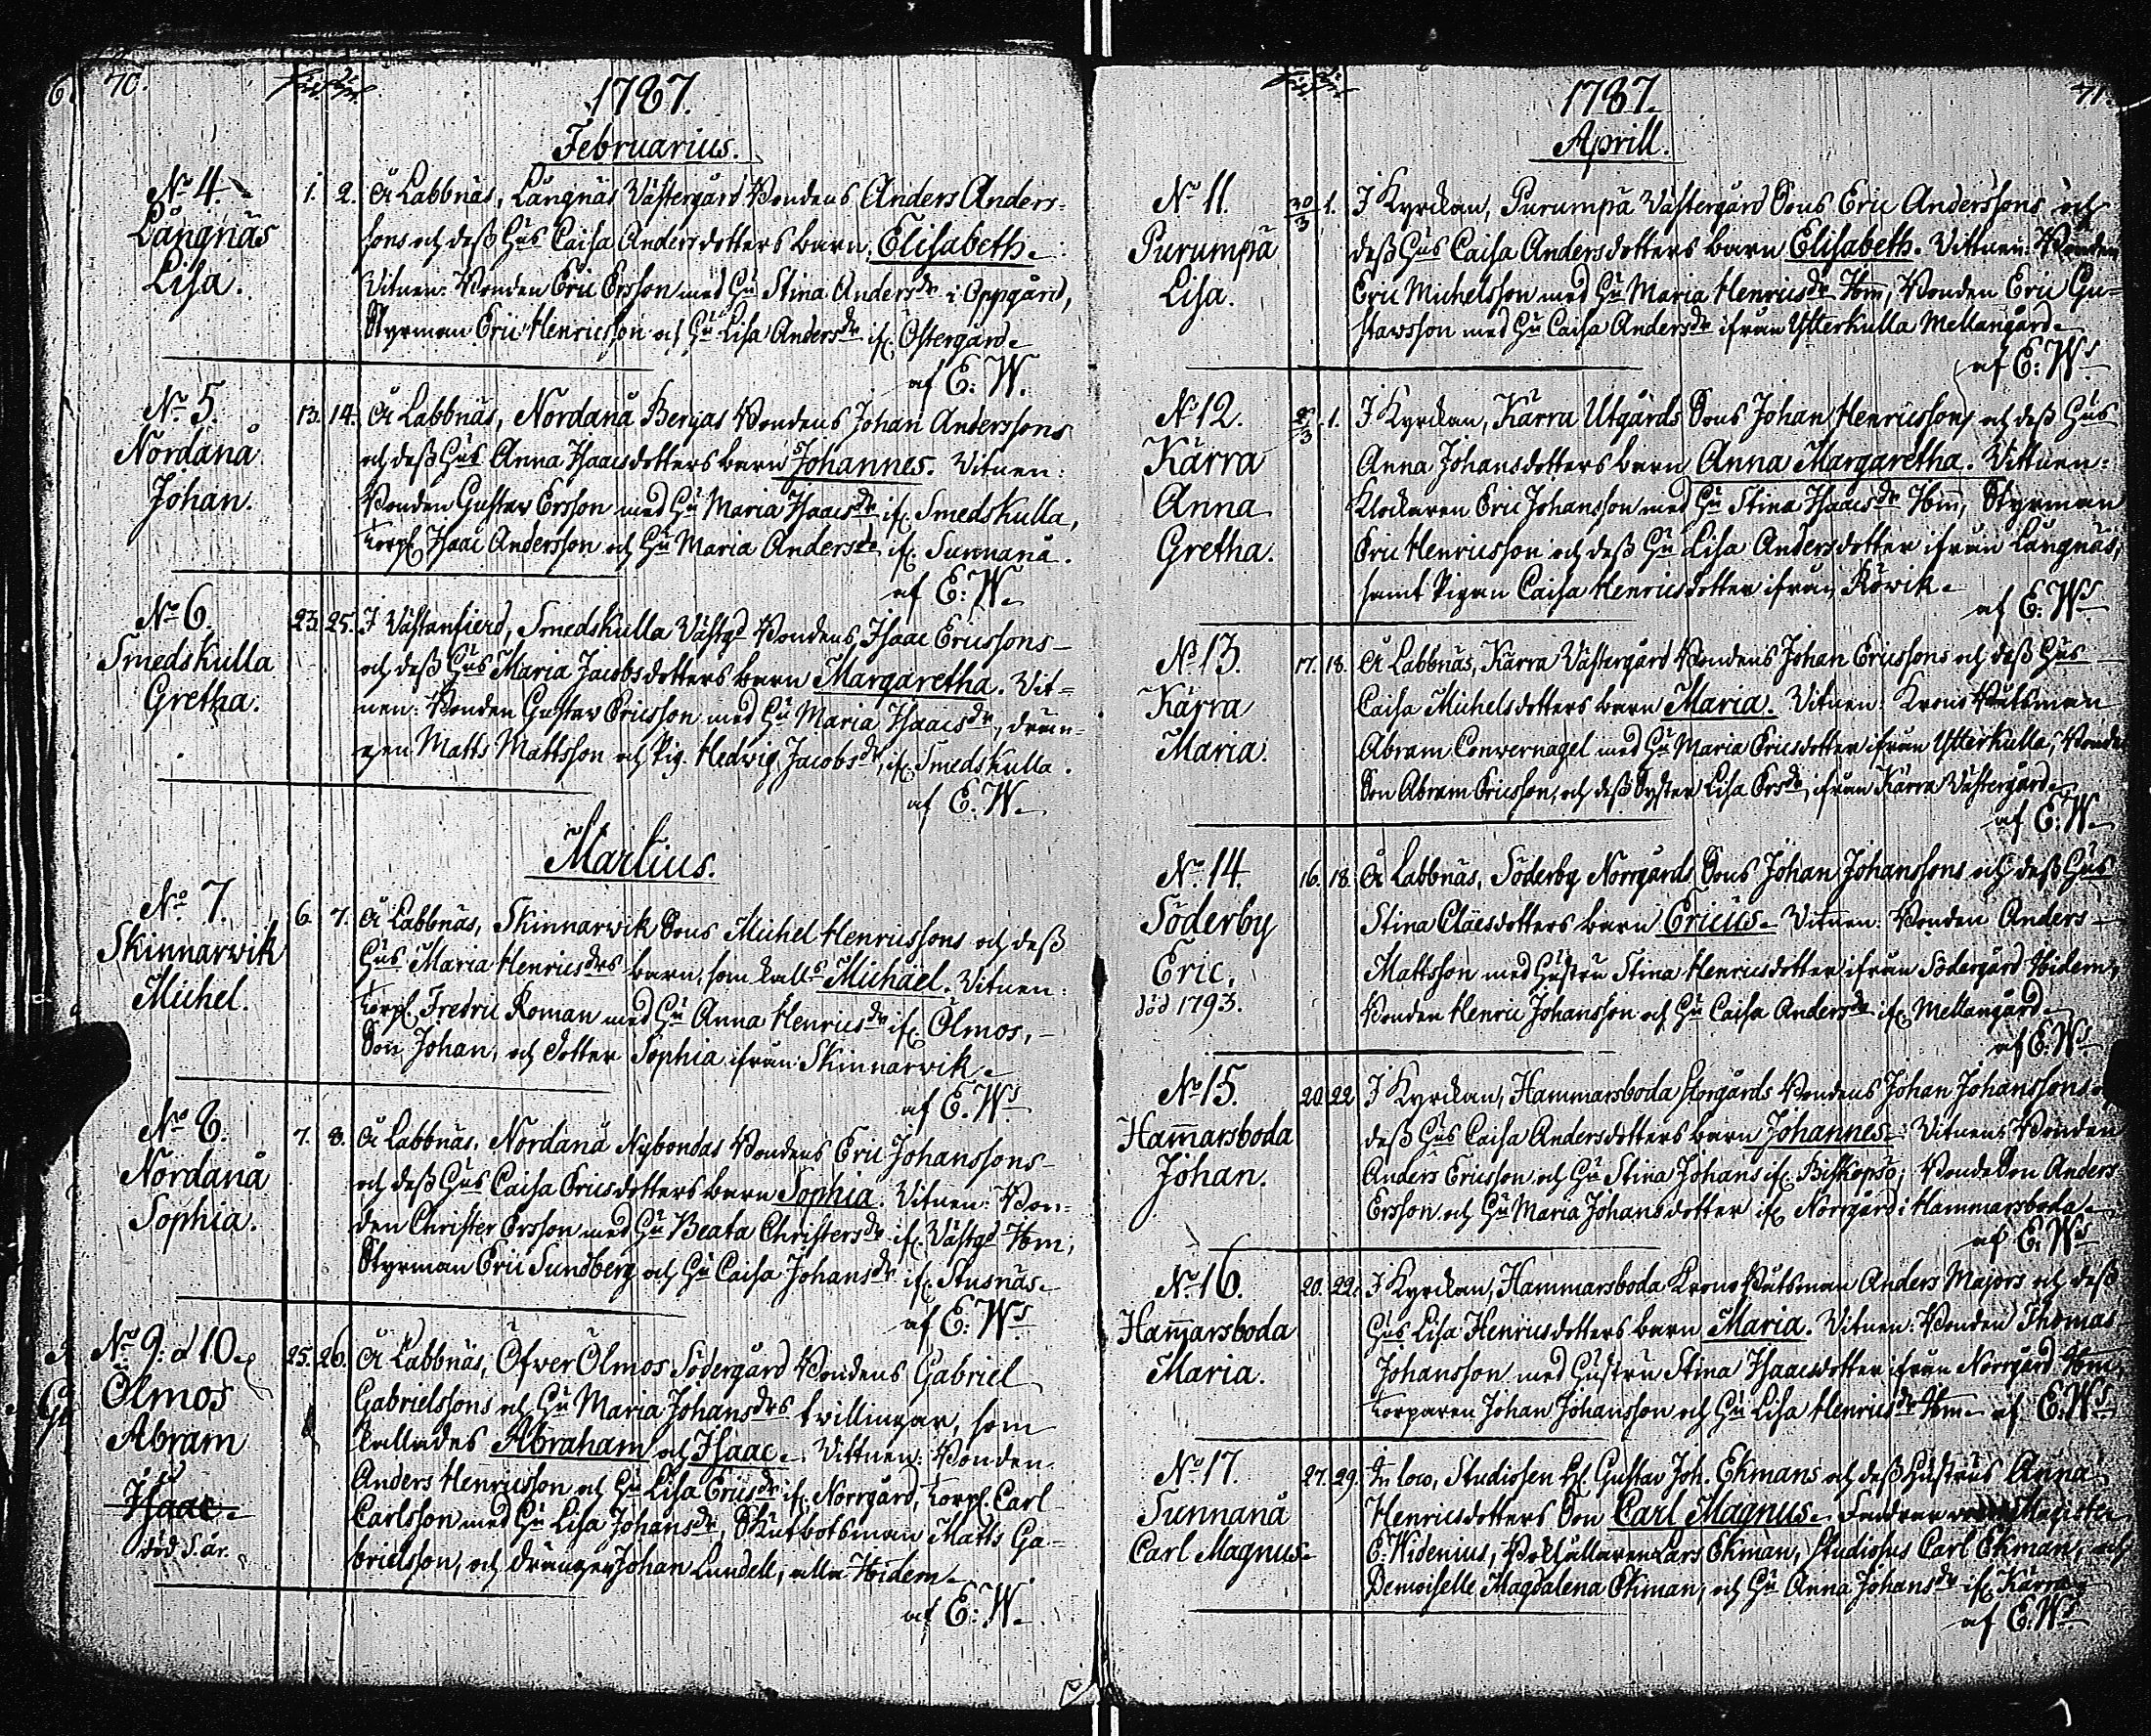 70.
1787.
Februarius.
No 4.
Långnäs
Lisa.
1. 2. Å Labbnäs, Långnäs Västergård Bondens Anders Anders-
sons och dess Hus Caisa Andersdotters barn Elisabeth.
Vitnen: Bonden Eric Ersson med Hu Stina Andersdr i Oppgård,
Styrman Eric Henricsson och Hu Lisa Andersdr if. Östergård.
af E: W.
No 5.
Nordanå
Johan.
13. 14. Å Labbnäs, Nordanå Bergas Bondens Johan Anderssons
och dess Hus Anna Isaacsdotters barn Johannes. Vitnen:
Bonden Gustav Ersson med Hu Maria Isaacsdr if. Smedskulla,
Torp. Isaac Andersson och Hu Maria Andersdr if. Sunnanå.
af E: W.
No 6.
Smedskulla
Gretha.
23. 25. I Västanfierd, Smedskulla Västgd Bondens Isaac Ericssons
och dess Hus Maria Jacobsdotters barn Margaretha. Vit-
nen: Bonden Gustav Ericsson med Hu Maria Isaacsdr, drän-
gen Matts Mattsson och Pig. Hedvig Jacobsdr, if. Smedskulla.
af E: W.
Martius.
No 7.
Skinnarwik
Michel.
6. 7. Å Labbnäs, Skinnarwik Sons Michel Henricssons och dess
Hus Maria Henricsdrs barn, som kalls Michael. Vitnen:
Torp. Fredric Roman med Hu Anna Henricsdr if. Ölmos,
Son Johan, och dotter Sophia ifrån Skinnarwik.
af E. Ws
No 8.
Nordanå
Sophia.
7. 8. Å Labbnäs, Nordanå Nybondas Bondens Eric Johanssons
och dess Hus Caisa Ericsdotters barn Sophia. Vitnen: Bon-
den Christer Ersson med Hu Beata Christersdr if. Västgd Ibm,
Styrman Eric Sundberg och Hu Caisa Johansdr if. Stusnäs.
af E: Ws
No 9: & 10.
Ölmos
Abram
Isaac.
död 5. år.
25. 26. Å Labbnäs, Öfwer Ölmos Södergård Bondens Gabriel
Gabrielssons och Hu Maria Johansdrs twillingar, som
kallades Abraham och Isaac. Vittnen: Bonden
Anders Henricsson och Hu Lisa Ericsdr if. Norrgård, Torp. Carl
Carlsson med Hu Lisa Johansdr, Skutbotsman Matts Ga-
brielsson, och drängen Johan Lundell, alla Ibidem.
af E: W.
71.
1787.
Aprill.
No 11.
Purumpä
Lisa.
30/3 1. I Kyrckan, Purumpä Västergård Sons Eric Anderssons och
dess Hus Caisa Andersdotters barn Elisabeth. Vittnen: Bonden
Eric Michelsson med Hu Maria Henricsdr Ibm, Bonden Eric Gu-
stavsson med Hu Caisa Andersdr ifrån Ytterkulla Mellangård.
af E: Ws
No 12.
Kärra
Anna
Gretha.
1. I Kyrckan, Kärra Utgårds Sons Johan Henricssons och dess Hus
Anna Johansdotters barn Anna Margaretha. Vittnen:
Klockaren Eric Johansson med Hu Stina Isaacsdr Ibm, Styrman
Eric Henricsson och dess Hu Lisa Andersdotter ifrån Långnäs,
samt Pigan Caisa Henricsdotter ifrån Röwik.
af E: Ws
No 13.
Kärra
Maria.
17. 18. Å Labbnäs, Kärra Västergård Bondens Johan Ericssons och dess Hus
Caisa Michelsdotters barn Maria. Vitnen: Krono Båtsman
Abram Conwernagel med Hu Maria Ericsdotter ifrån Ytterkulla, Bonde
Son Abram Ericsson, och dess Syster Lisa Ersdr, ifrån Kärra Västergård.
af E: W.
No 14.
Söderby
Eric.
död 1793.
16. 18. Å Labbnäs, Söderby Norrgårds Sons Johan Johanssons och dess Hus
Stina Claesdotters barn Ericus. Vitnen: Bonden Anders
Mattsson med Hustru Stina Henricsdotter ifrån Södergård Ibidem,
Bonden Henric Johansson och Hu Caisa Andersdr if. Mellangård.
af E: Ws
No 15.
Ham̄arsboda
Johan.
20. 22. I Kyrckan, Hammarsboda Storgårds Bondens Johan Johanssons
dess Hus Caisa Andersdotters barn Johannes. Vitnen: Bonden
Anders Ericsson och Hu Stina Johans if. Biskopsö, Bonde Son Anders
Ersson och Hu Maria Johansdotter if. Norrgård i Hammarsboda.
af E. Ws
No 16.
Ham̄arsboda
Maria.
20. 22. I Kyrckan, Hammarsboda Krono Båtsman Anders Majors och dess
Hus Lisa Henricsdotters barn Maria. Vitnen: Bonden Thomas
Johansson med Hustru Stina Isaacsdotter ifrån Norrgård Ibm,
Torparen Johan Johansson och Hu Lisa Henricsdr Ibm. af E: Ws
No 17.
Sunnanå
Carl Magnus.
27. 29. In loco, Studiosen H. Gustav Joh. Ekmans och dess Hustrus Anna
Henricsdotters Son Carl Magnus. Faddrar Magister
E: Widenius, Bokhållaren Lars Ekman, Studiosus Carl Ekman, och
Demoiselle Magdalena Ekman, och Hu Anna Johansdr if. Kärra.
af E: Ws